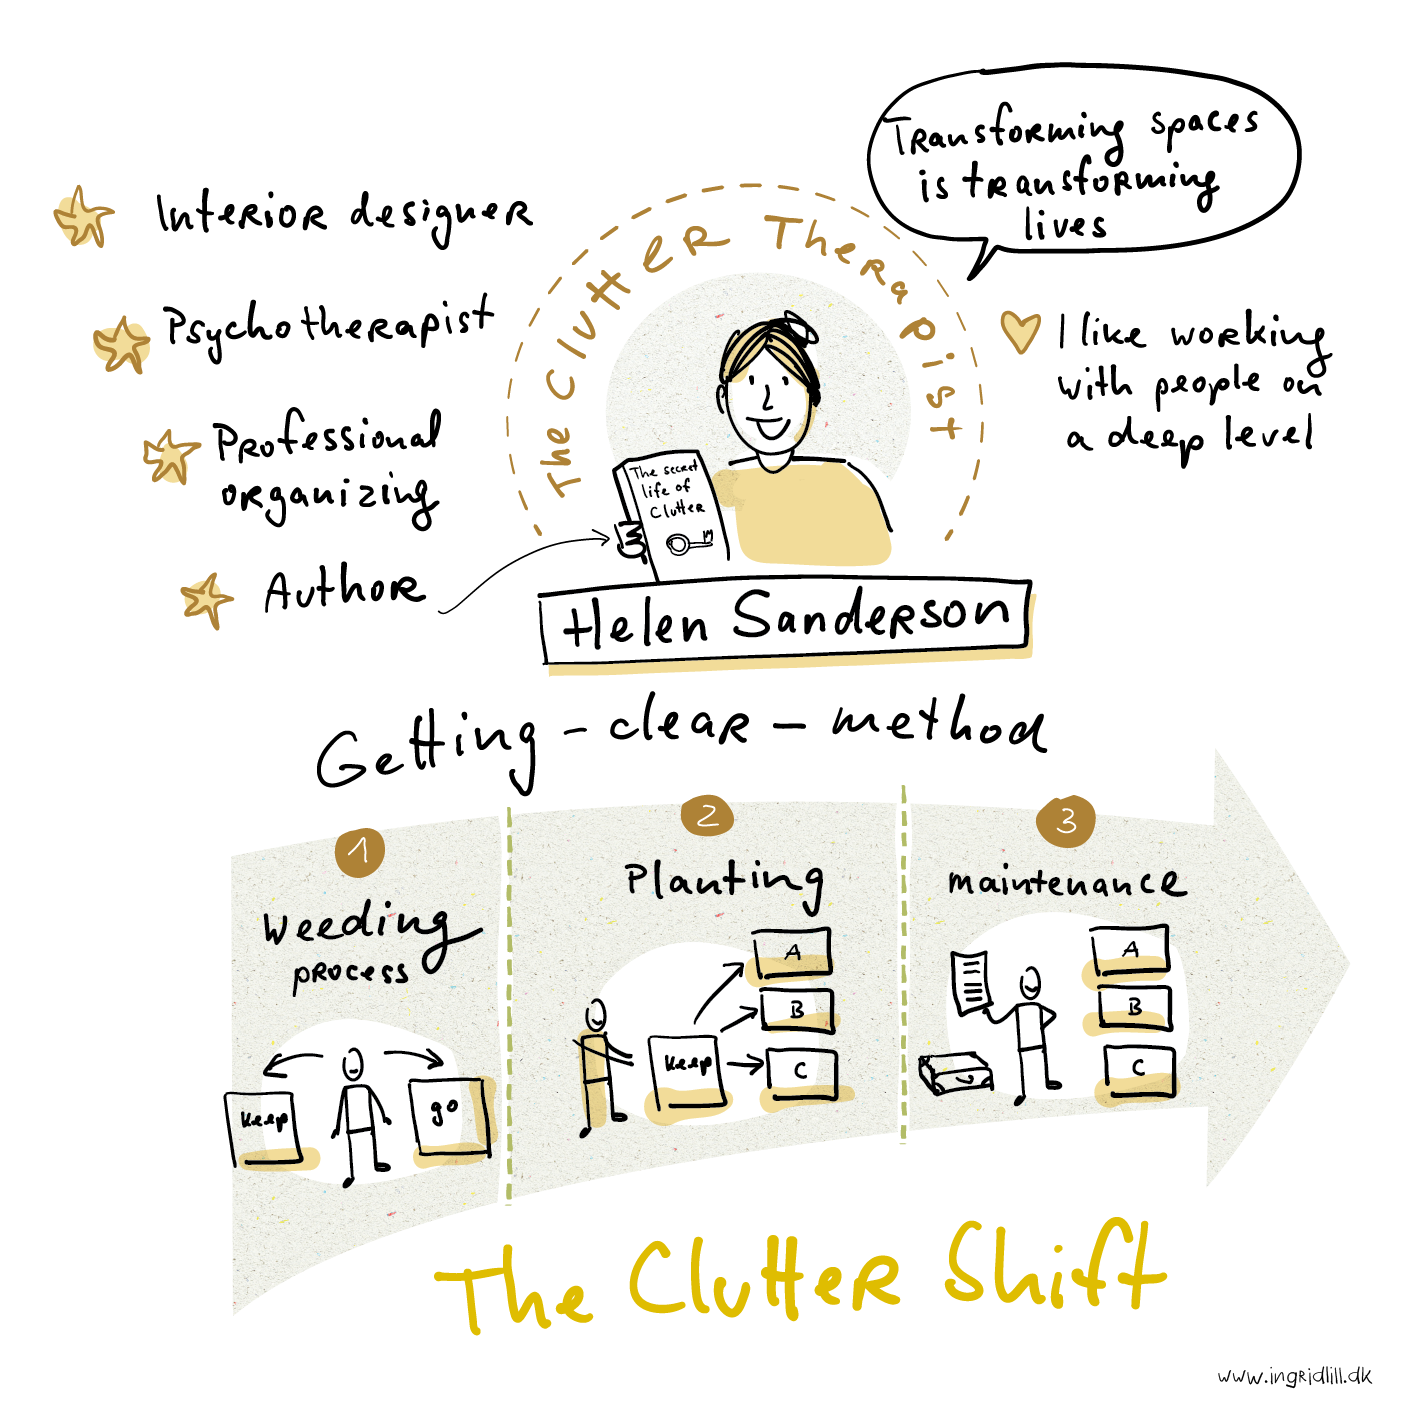 Transforming spaces
is transforming
lives
Interior designer
Psychotherapist
Professional
organizing
Author
The Clutter Therapist
I like working
with people on
a deep level
The secret
life of
Clutter
Helen Sanderson
Getting - clear - method
1
Weeding
process
keep
go
2
Planting
keep
A
B
C
3
maintenance
A
B
C
The Clutter Shift
www.ingridlill.dk